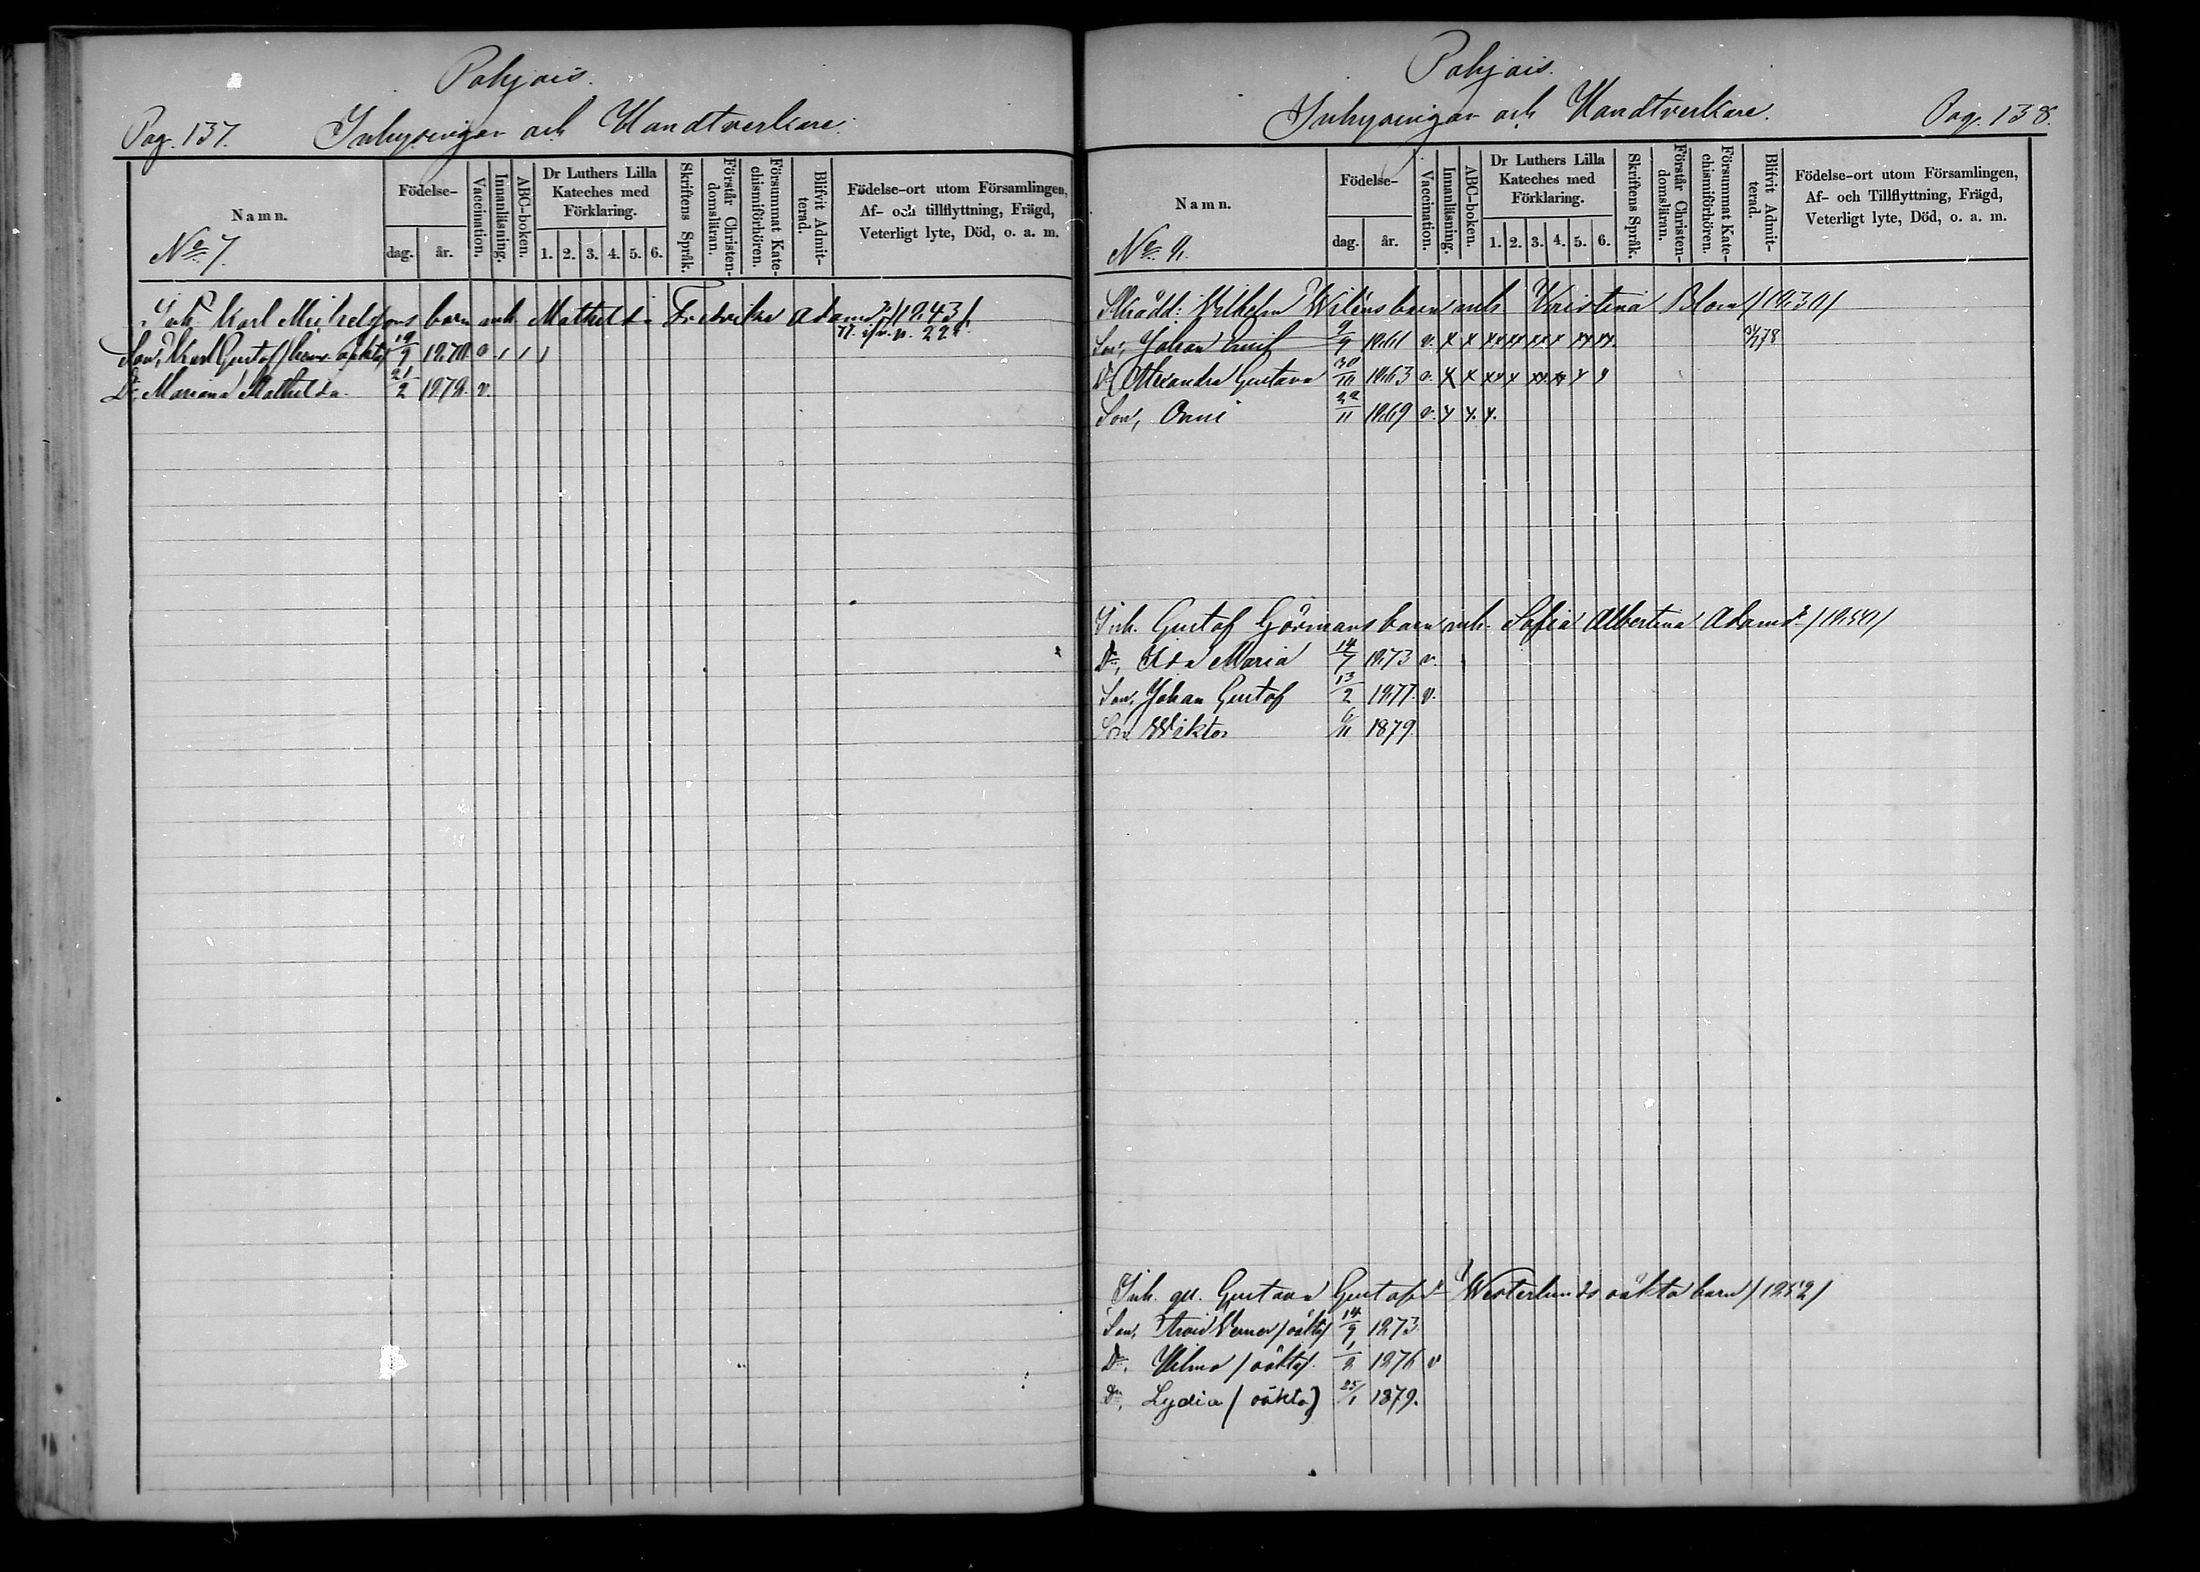 Pohjois.
Pag. 137. Inhysingar och Handtverkare.
Namn.
No 7.
Födelse-
dag. år.
Vaccination.
Innanläsning.
ABC-boken.
Dr Luthers Lilla
Kateches med
Förklaring.
1. 2. 3. 4. 5. 6.
Skriftens Språk.
Förstår Christen-
domsläran.
Försummat Kate-
chismiförhören.
Blifvit Admit-
terad.
Födelse-ort utom Församlingen,
Af- och tillflyttning, Frägd,
Veterligt lyte, Död, o. a. m.
Inh. Karl Michelssons barn mh. Mathilda Fredrika Adamsdr /1843/.
Son, Karl Gustaf 19/9 1870. v / / /
Dr. Mariana Mathilda. 21/2 1878. v.
Pohjois.
Inhysingar och Handtverkare. Pag. 138.
Namn.
No 8.
Födelse-
dag. år.
Vaccination.
Innanläsning.
ABC-boken.
Dr Luthers Lilla
Kateches med
Förklaring.
1. 2. 3. 4. 5. 6.
Skriftens Språk.
Förstår Christen-
domsläran.
Försummat Kate-
chismiförhören.
Blifvit Admit-
terad.
Födelse-ort utom Församlingen,
Af- och Tillflyttning, Frägd,
Veterligt lyte, Död, o. a. m.
Skrädd: Vilhelm Wiléns barn mh Kristina Blom /1830/
Son, Johan Emil 9/9 1861 v. x x xx xx xx x xx xx. /78
Dr Alexandra Gustava 30/10 1863 v. x x xx x xx xx x x
Son, Onni 22/11 1869 v. x x. x.
Inh. Gustaf Görmans barn mh. Sofia Albertina Adamsdr /1850/
Dr, Ida Maria 14/7 1873 v.
Son, Johan Gustaf 13/2 1877. v.
Son Wiktor 6/11 1879.
Inh. qv. Gustava Gustafsdr Westerlunds oäkta barn /1852/
Son, Arvid Verner /oäkta/ 14/9 1873.
Dr. Hilma /oäkta/. 1/2 1876 v
Dr, Lydia (oäkta) 25/1 1879.